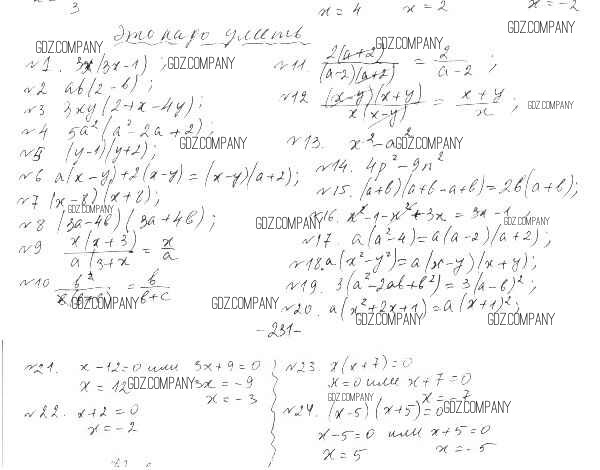 3
x = 4 x = 2 x = -2
GDZ.COMPANY
Это надо уметь
GDZ.COMPANY GDZ.COMPANY
№1. 3x(3x-1); GDZ.COMPANY
№2 ab(2-b);
№3 3xy(2+x-4y);
GDZ.COMPANY
№4 5a²(a²-2a+2);
GDZ.COMPANY
№5 (y-1)(y+2);
№6 a(x-y)+2(x-y)=(x-y)(a+2);
№7 (x-8)(x+8);
GDZ.COMPANY
№8 (3a-4b)(3a+4b);
№9 x(x+3) / a(3+x) = x/a
№10 b² / (b+c) = b / b+c
GDZ.COMPANY
№11 2(a+2) / (a-2)(a+2) = 2 / a-2;
№12 (x-y)(x+y) / x(x-y) = x+y / x; GDZ.COMPANY
№13. x²-a²
GDZ.COMPANY
№14. 4p²-9n²
№15. (a+b)(a+b-a+b)=2b(a+b);
GDZ.COMPANY
№16. x²-1-x²+3x = 3x-1;
GDZ.COMPANY
№17. a(a²-4)=a(a-2)(a+2);
№18. a(x²-y²)=a(x-y)(x+y);
GDZ.COMPANY
№19. 3(a²-2ab+b²)=3(a-b)²;
GDZ.COMPANY
№20. a(x²+2x+1)=a(x+1)²;
GDZ.COMPANY GDZ.COMPANY
-231-
№21. x-12=0 или 3x+9=0
x = 12 3x = -9
GDZ.COMPANY
x = -3
№22. x+2=0
x = -2
№23. x(x+7)=0
x=0 или x+7=0
GDZ.COMPANY x = -7
№24. (x-5)(x+5)=0
GDZ.COMPANY
x-5=0 или x+5=0
x = 5 x = -5